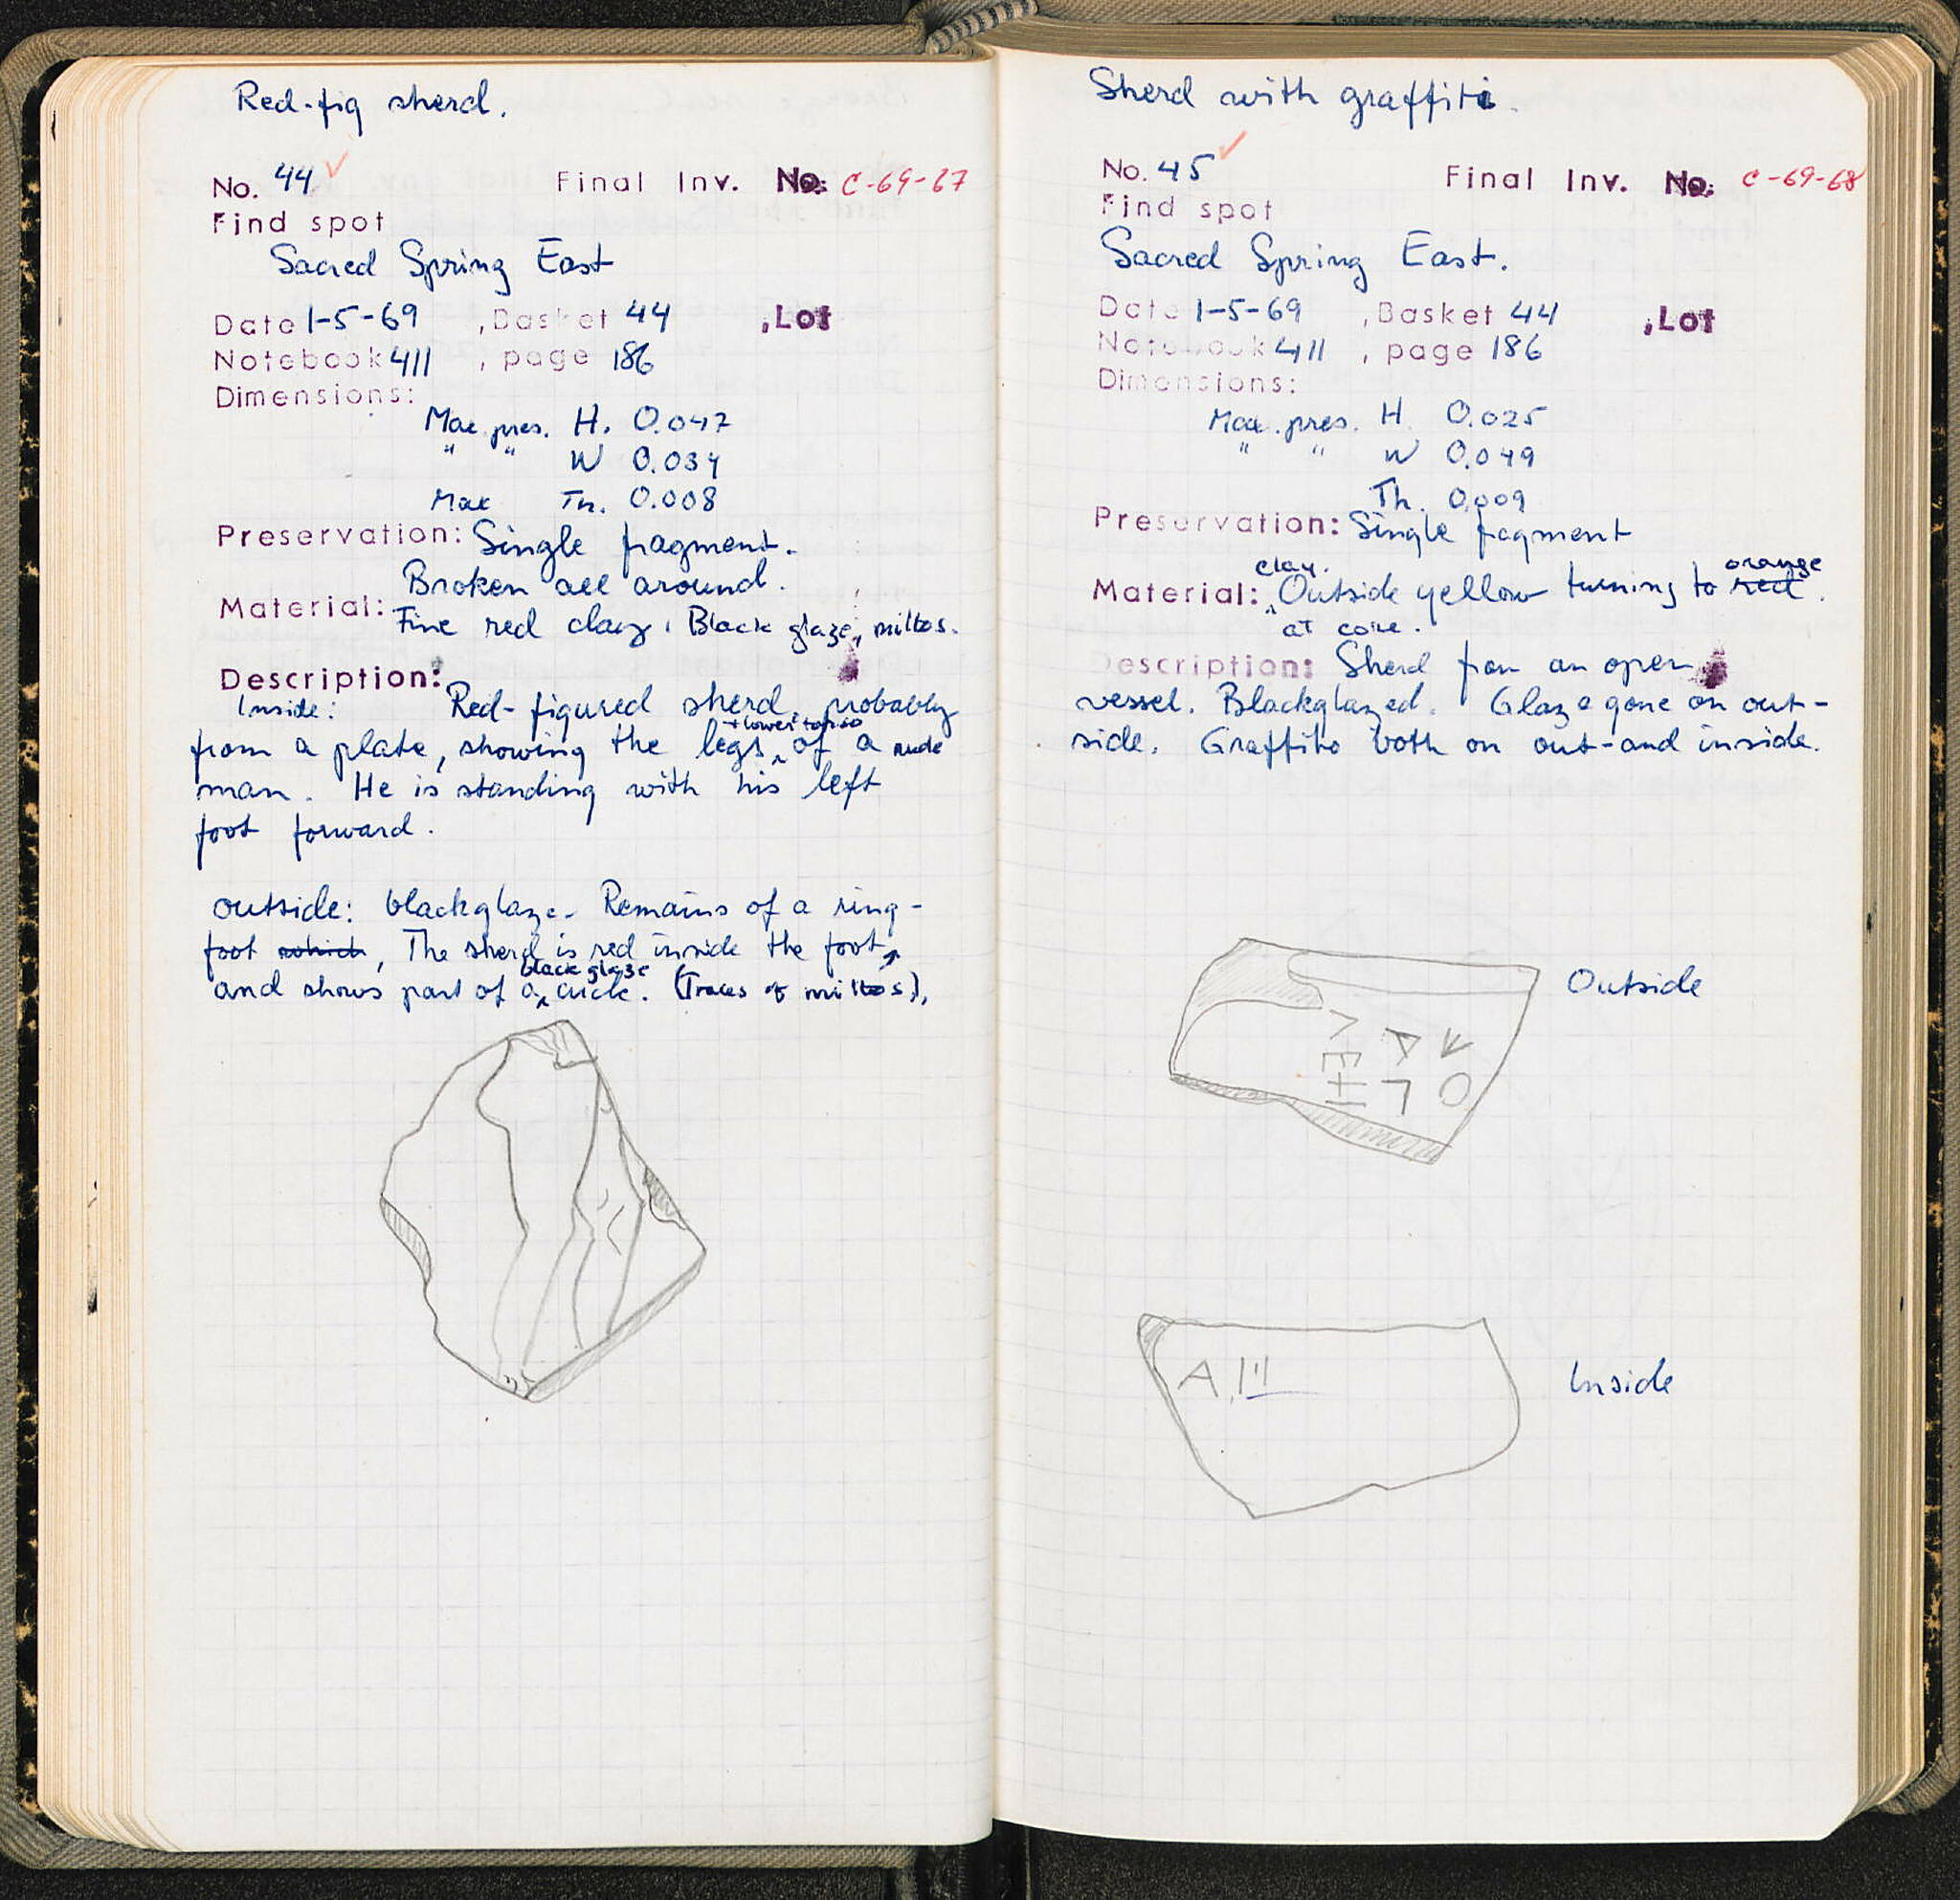 Red-fig sherd.
No. 44 Final Inv. No: C-69-67
Find spot
Sacred Spring East
Date 1-5-69 , Basket 44 , Lot
Notebook 411 , page 186
Dimensions:
Max pres. H. 0.047
" " W 0.034
Max Th. 0.008
Preservation: Single fragment.
Broken all around.
Material: Fine red clay. Black glaze, miltos.
Description:
Inside: Red-figured sherd, probably
from a plate, showing the legs + lower torso of a nude
man. He is standing with his left
foot forward.
outside: blackglaze. Remains of a ring-
foot which, The sherd is red inside the foot,
and shows part of a black glaze circle. (Traces of miltos).
Sherd with graffiti.
No. 45 Final Inv. No: C-69-68
Find spot
Sacred Spring East.
Date 1-5-69 , Basket 44 , Lot
Notebook 411 , page 186
Dimensions:
Max. pres. H. 0.025
" " W 0.049
Th. 0.009
Preservation: Single fragment
Material: clay. Outside yellow turning to red orange.
at core.
Description: Sherd from an open
vessel. Blackglazed. Glaze gone on out-
side. Graffito both on out- and inside.
Outside
Inside